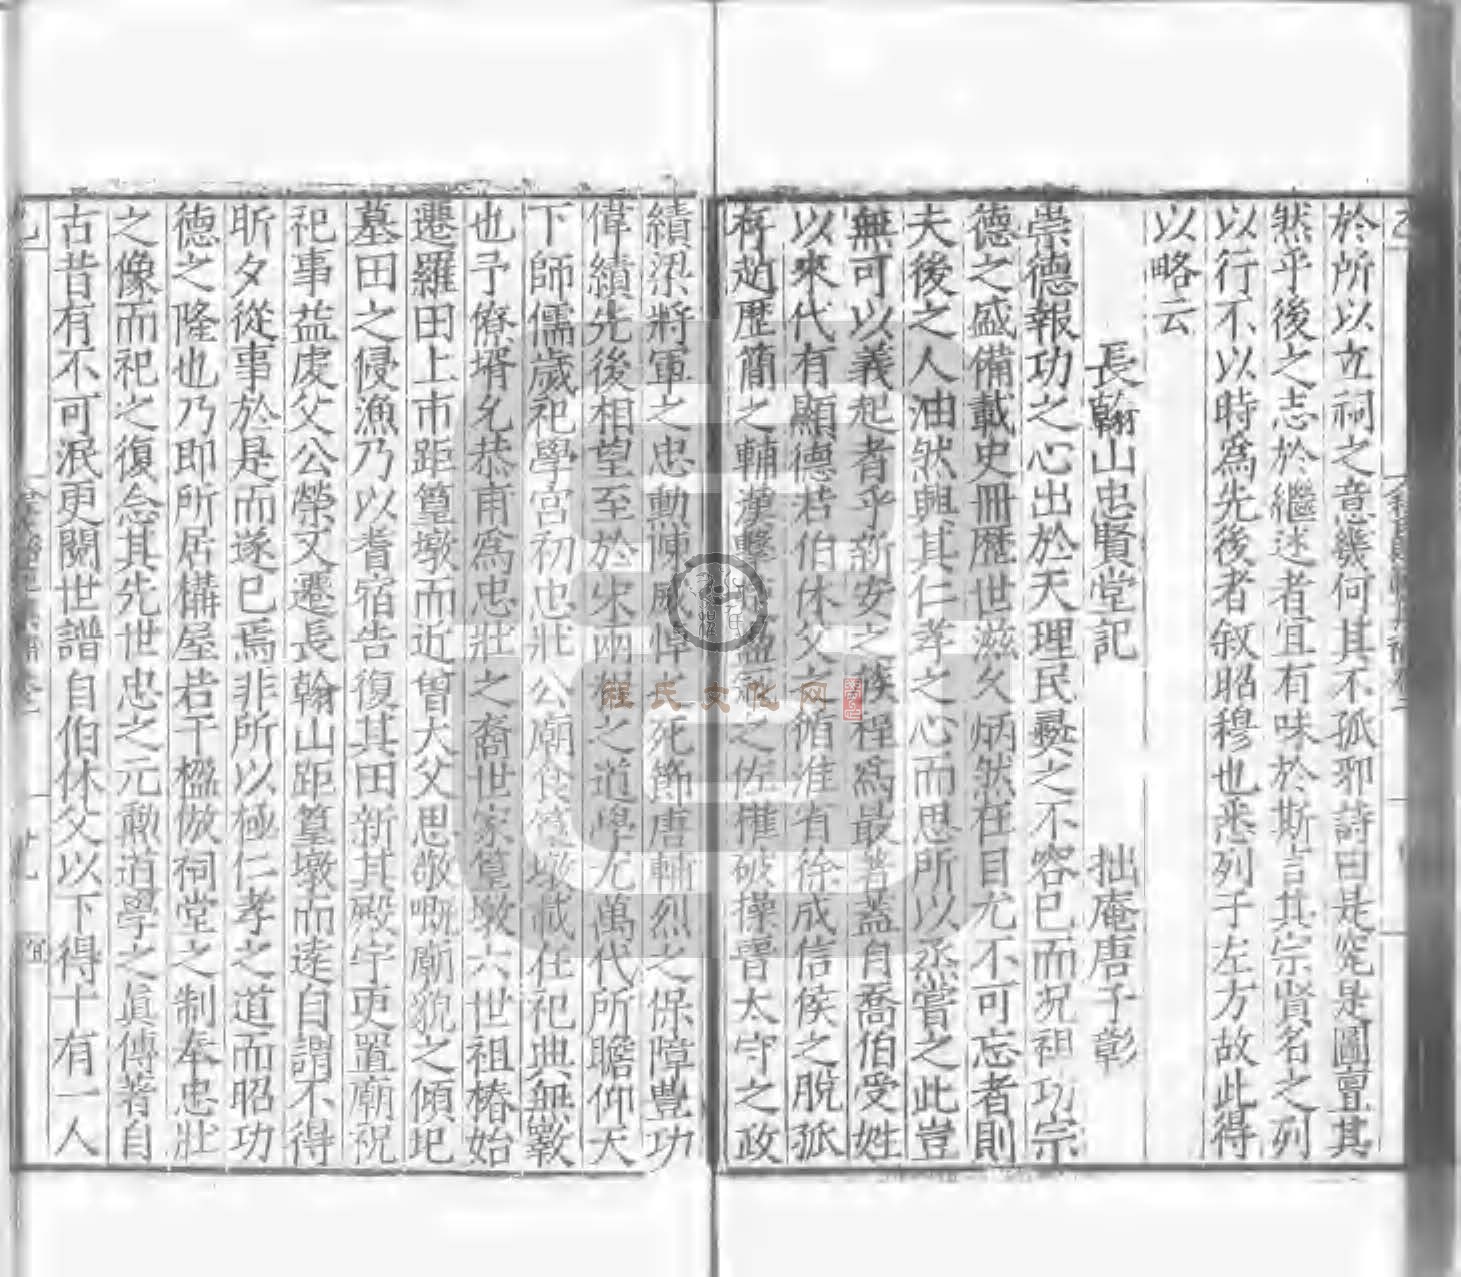 於所以立祠之意幾何其不孤邪詩曰是究是圖亶其
然乎後之志於繼述者宜有味於斯言其宗賢名之列
以行不以時爲先後者叙昭穆也悉列于左方故此得
以略云
長翰山忠賢堂記 拙庵唐子彰
崇德報功之心出於天理民彝之不容已而况祖功宗
德之盛備載史冊歷世滋久炳然在目尤不可忘者則
夫後之人油然興其仁孝之心而思所以烝嘗之此豈
無可以義起者乎新安之族程爲最著蓋自喬伯受姓
以來代有顯德若伯休父之循淮省徐成信侯之脱孤
存趙歷簡之輔漢擊之佐權破操晋太守之政
績梁將軍之忠勳悚威悍死節唐輔烈之保障豐功
偉績先後相望至於宋兩之道學尤萬代所瞻仰天
下師儒歲祀學宮初忠壯公廟食篁墩載在祀典無斁
也予僚壻允恭甫爲忠壯之裔世家篁墩六世祖椿始
遷羅田上市距篁墩而近曾大父思敬嘅廟貌之傾圮
墓田之侵漁乃以耆宿告復其田新其殿宇更置廟祝
祀事益虔父公榮又遷長翰山距篁墩而遠自謂不得
昕夕從事於是而遂已焉非所以極仁孝之道而昭功
德之隆也乃即所居構屋若干楹倣祠堂之制奉忠壯
之像而祀之復念其先世忠之元勳道學之眞傳著自
古昔有不可泯更閱世譜自伯休父以下得十有一人
程氏文化网